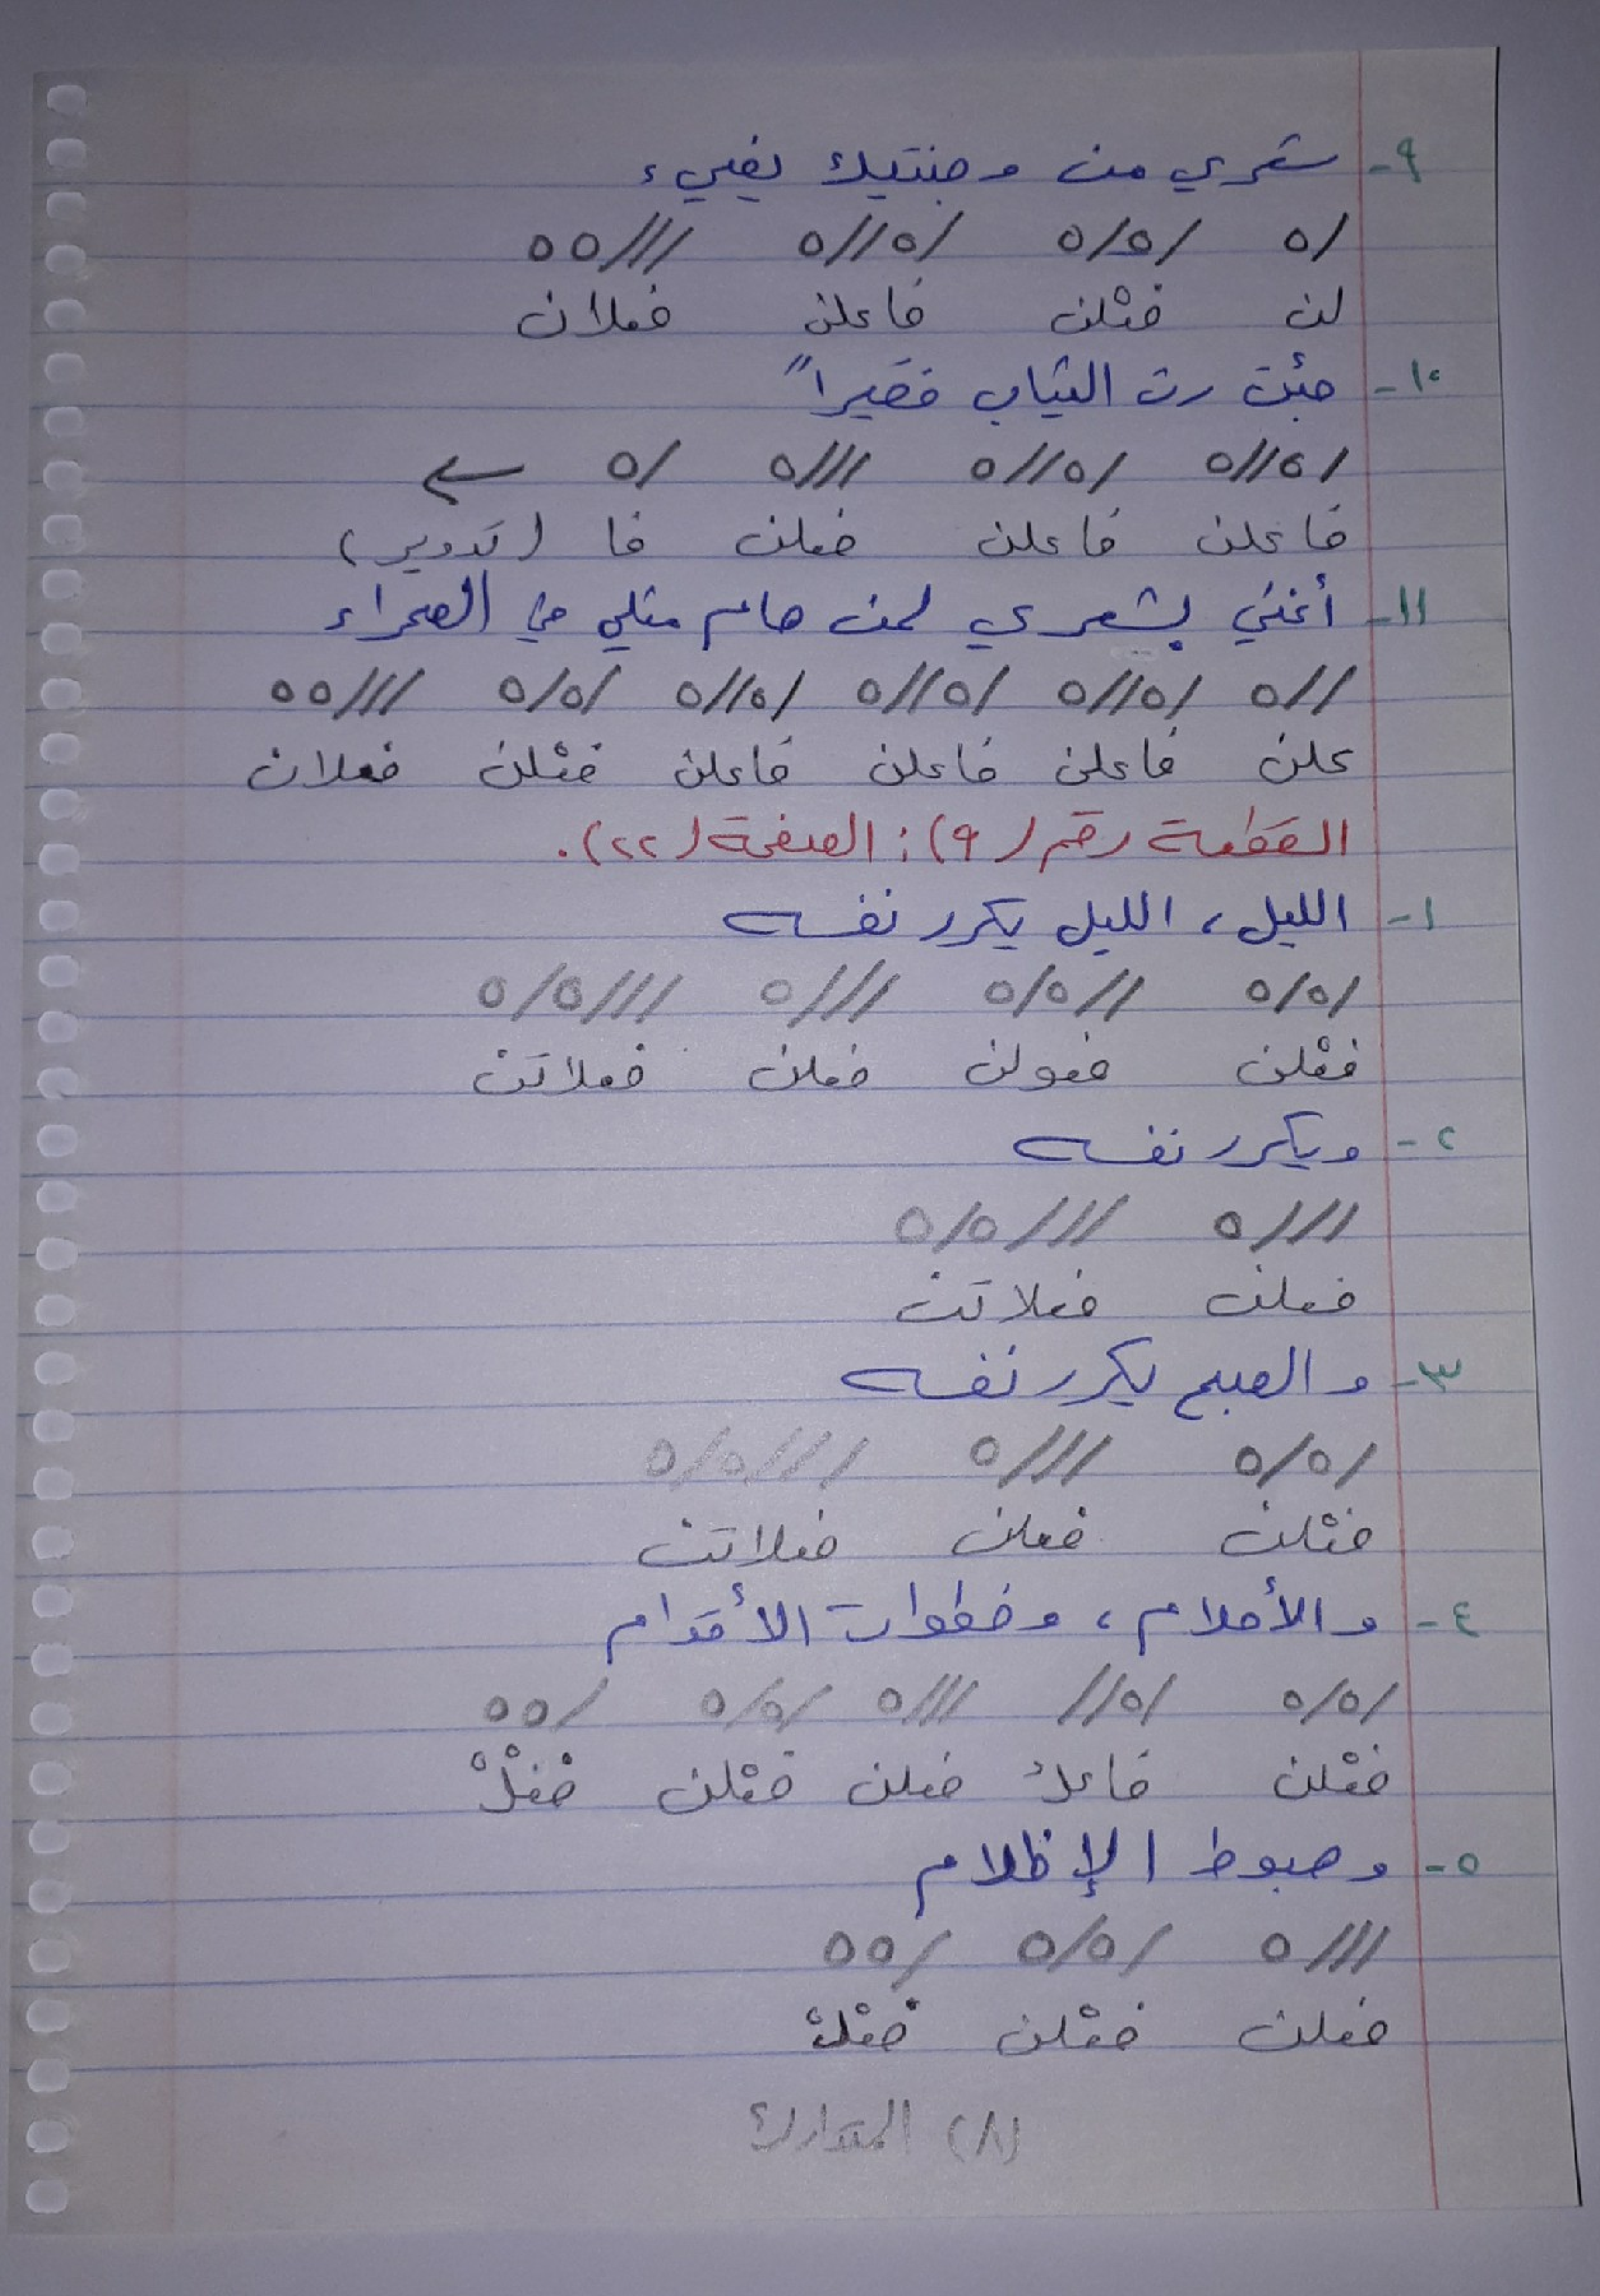 ٩- شعري من وجنتيك يضيء
/٥ /٥/٥ /٥//٥ ///٥٥
لن فعْلن فاعلن فعلان
١٠- جئت رث الثياب فقيراً
/٥//٥ /٥//٥ ///٥ /٥
فاعلن فاعلن فعلن فا (تدوير)
١١- أغني بشعري لمن هام مثلي في الصحراء
//٥ /٥//٥ /٥//٥ /٥//٥ /٥/٥ ///٥٥
علن فاعلن فاعلن فاعلن فعْلن فعلان
القطعة رقم (٩): الصفحة (٢٢).
١- الليل، الليل يكرر نفسه
/٥/٥ //٥/٥ ///٥ ///٥/٥
فعْلن فعولن فعلن فعلاتن
٢- ويكرر نفسه
///٥ ///٥/٥
فعلن فعلاتن
٣- والصبح يكرر نفسه
/٥/٥ ///٥ ///٥/٥
فعْلن فعلن فعلاتن
٤- والأحلام، وخطوات الأقدام
/٥/٥ /٥// ///٥ /٥/٥ /٥٥
فعْلن فاعلُ فعلن فعْلن فعْلْ
٥- وهبوط الإظلام
///٥ /٥/٥ /٥٥
فعلن فعْلن فعْلْ
(٨) المتدارك